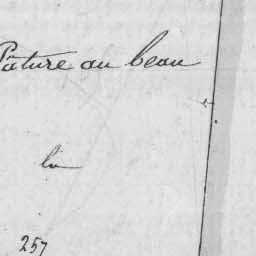 Pâture au beau
la
257